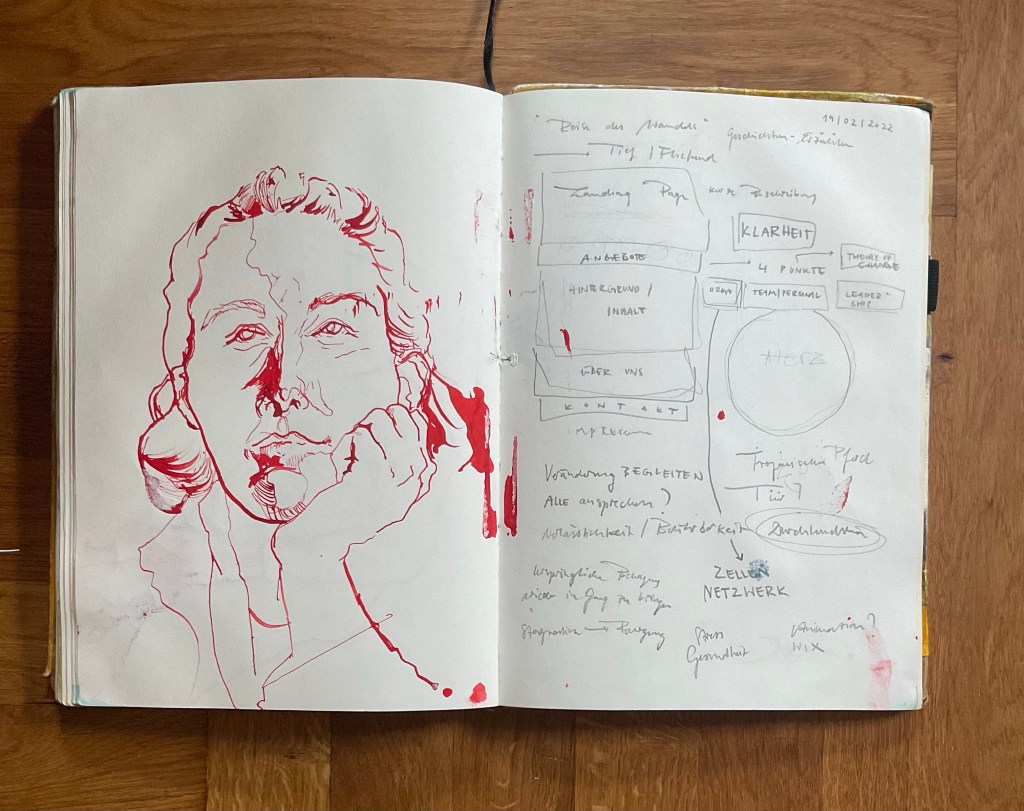 19/02/2022
"Reise des Wandels" Geschichten-Erzählen
Tief / Fliessend
Landing Page
kurze Beschreibung
KLARHEIT
ANGEBOTE
4 PUNKTE
THEORY OF CHANGE
HINTERGRUND /
INHALT
ORGA
TEAM/PERSONAL
LEADER-
SHIP
Herz
ÜBER UNS
KONTAKT
IMPRESSUM
Trojanisches Pferd
Tür?
Veränderung BEGLEITEN
ALLE ansprechen?
Verlässlichkeit /
ZELLEN
NETZWERK
Ursprüngliche Bewegung
wieder in Gang zu bringen
Stagnation → Bewegung
Stress
Gesundheit
Animation?
WIX